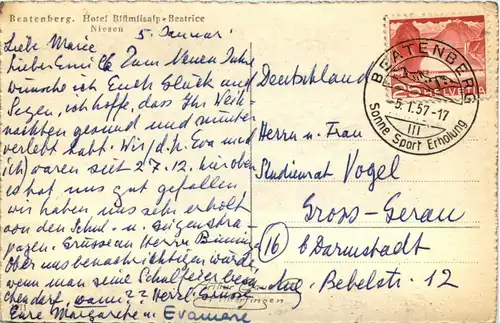 Beatenberg. Hotel Blümlisalp-Beatrice
Niesen
5. Januar
Liebe Maria
Lieber Emil! Zum Neuen Jahre
wünsche ich Euch Glück und
Segen, ich hoffe, dass Ihr Weih-
nachten gesund und munter
verlebt habt. Wir/d.h. Eva und
ich/ waren seit 27.12. hier oben
es hat uns gut gefallen
wir haben uns sehr erholt
von den Schul- u. Geigenstra-
pazen. Grüsse an Herrn
Ober uns benachrichtigen würde,
wenn man seine Schulfeier
wann?? Herzl. Grüsse
Eure Margarethe u. Evamarie
Deutschland
Herrn u. Frau
Studienrat Vogel
Gross-Gerau
(16) b Darmstadt
Aug. Bebelstr. 12
BEATENBERG
-5.1.57-17
III
Sonne Sport Erholung
25 HELVETIA